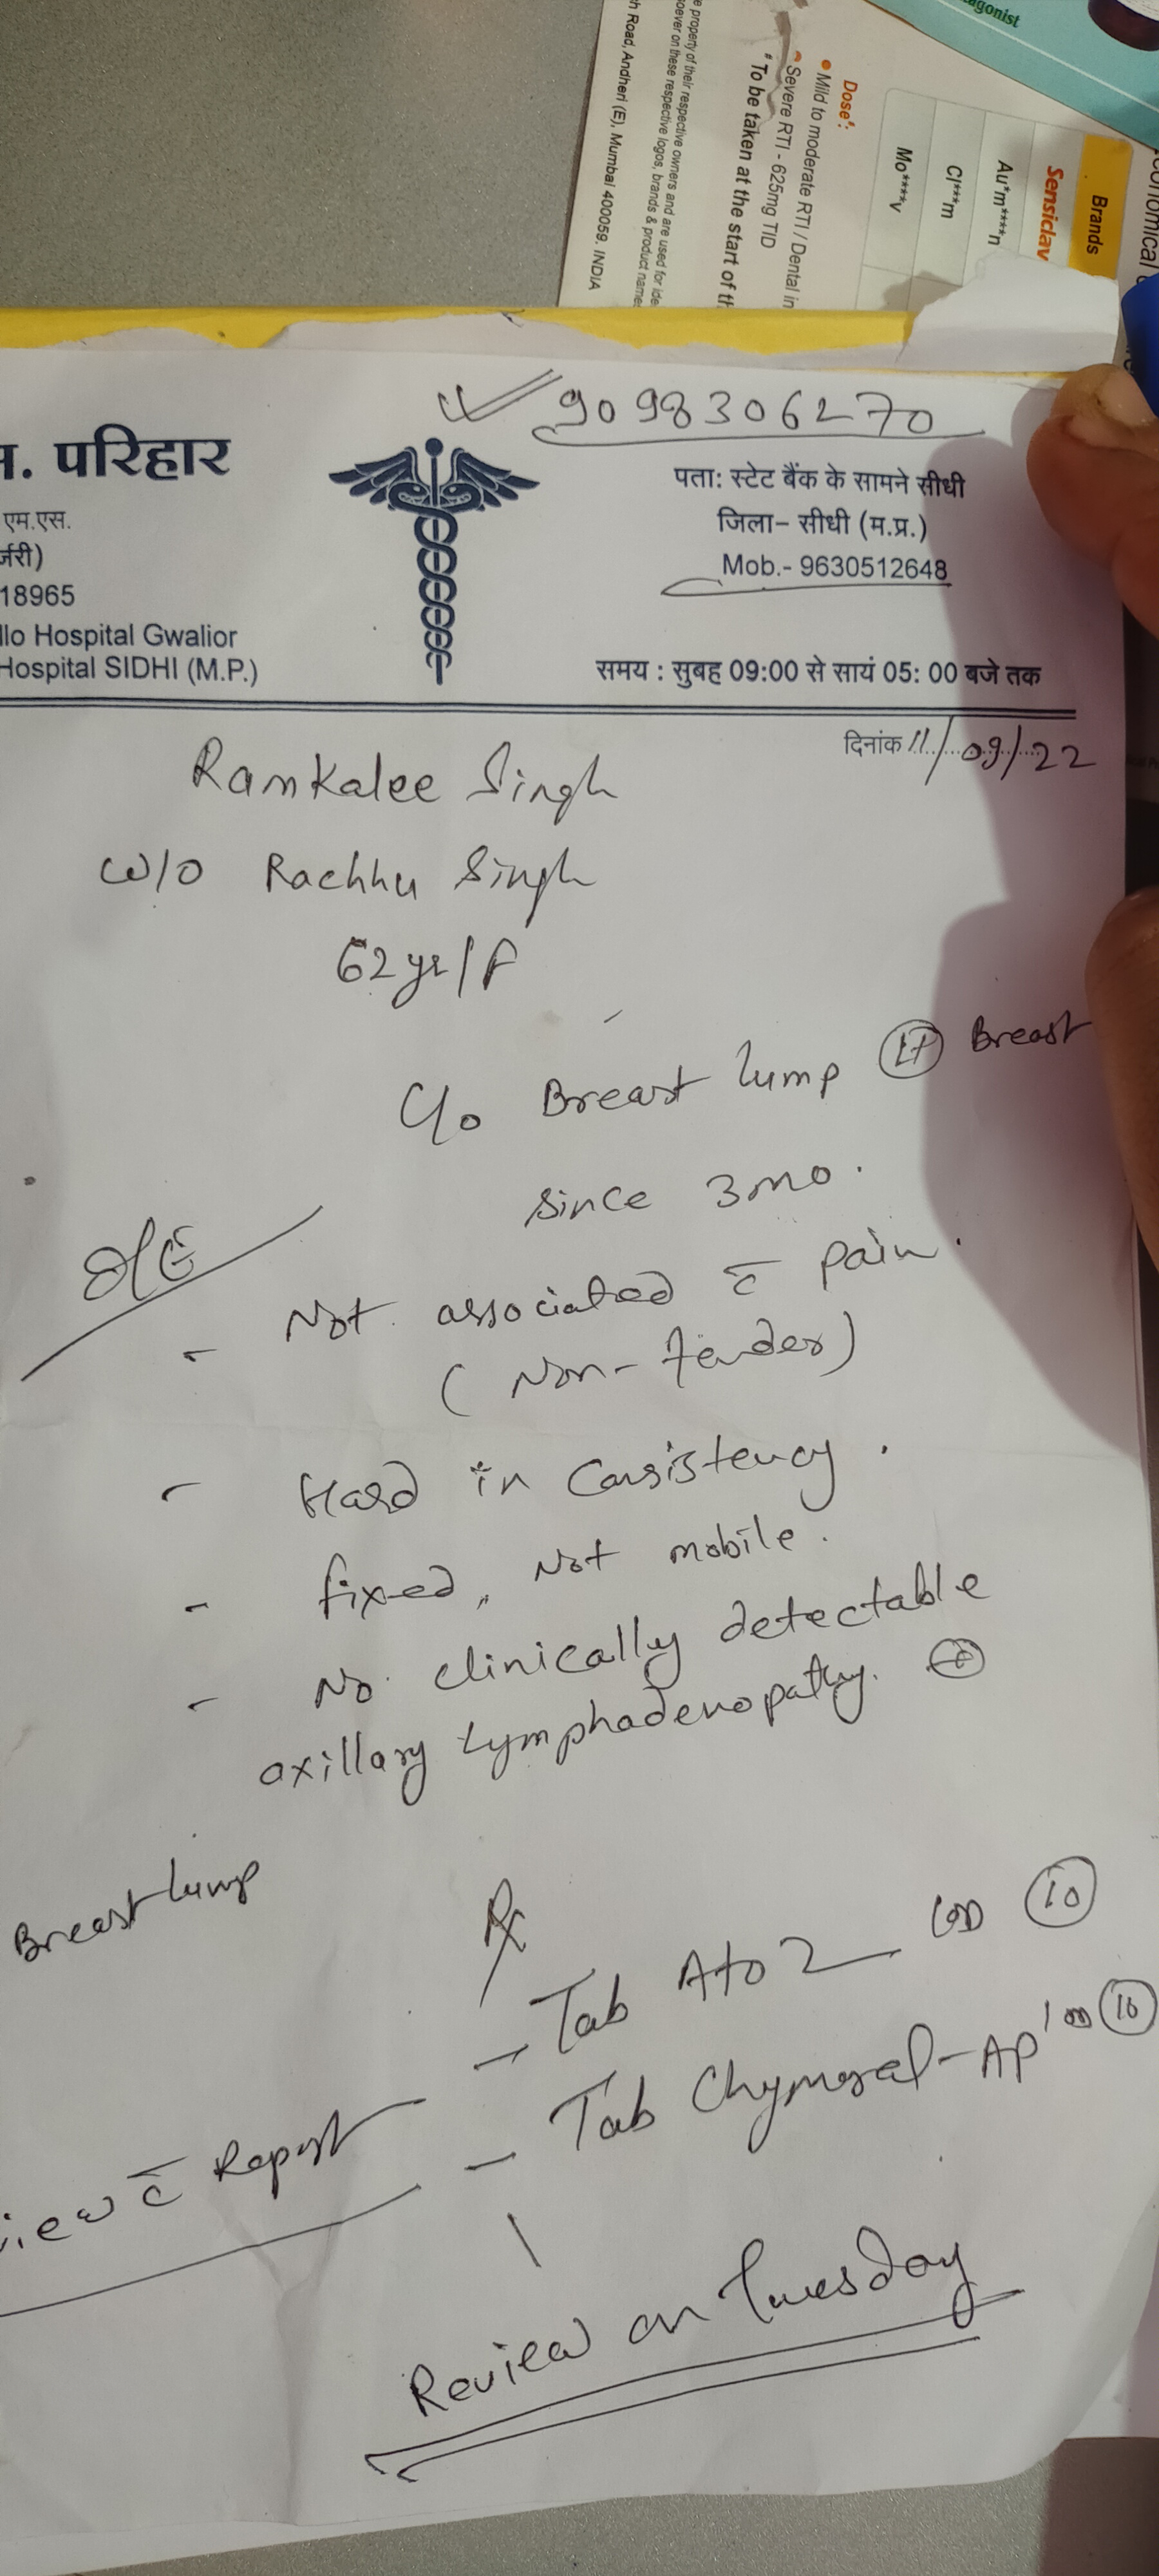 agonist
Brands
Sensiclav
Au*m****n
Cl***m
Mo****v
Dose#:
• Mild to moderate RTI / Dental in
• Severe RTI - 625mg TID
* To be taken at the start of th
e property of their respective owners and are used for ide
soever on these respective logos, brands & product names
h Road, Andheri (E), Mumbai 400059. INDIA
9098306270
. परिहार
एम.एस.
र्जरी)
18965
llo Hospital Gwalior
Hospital SIDHI (M.P.)
पता: स्टेट बैंक के सामने सीधी
जिला– सीधी (म.प्र.)
Mob.- 9630512648
समय : सुबह 09:00 से सायं 05: 00 बजे तक
दिनांक 11/09/22
Ramkalee Singh
W/O Rachhu Singh
62yr/F
C/o Breast lump Lt Breast
since 3mo.
O/E
- Not associated c̄ pain.
(Non-tender)
- Hard in Consistency.
- fixed, Not mobile.
- No clinically detectable
axillary Lymphadenopathy. +
Breast lump
Rx
- Tab AtoZ OD 10
- Tab Chymoral-AP 10
iew c̄ Report
Review on Tuesday